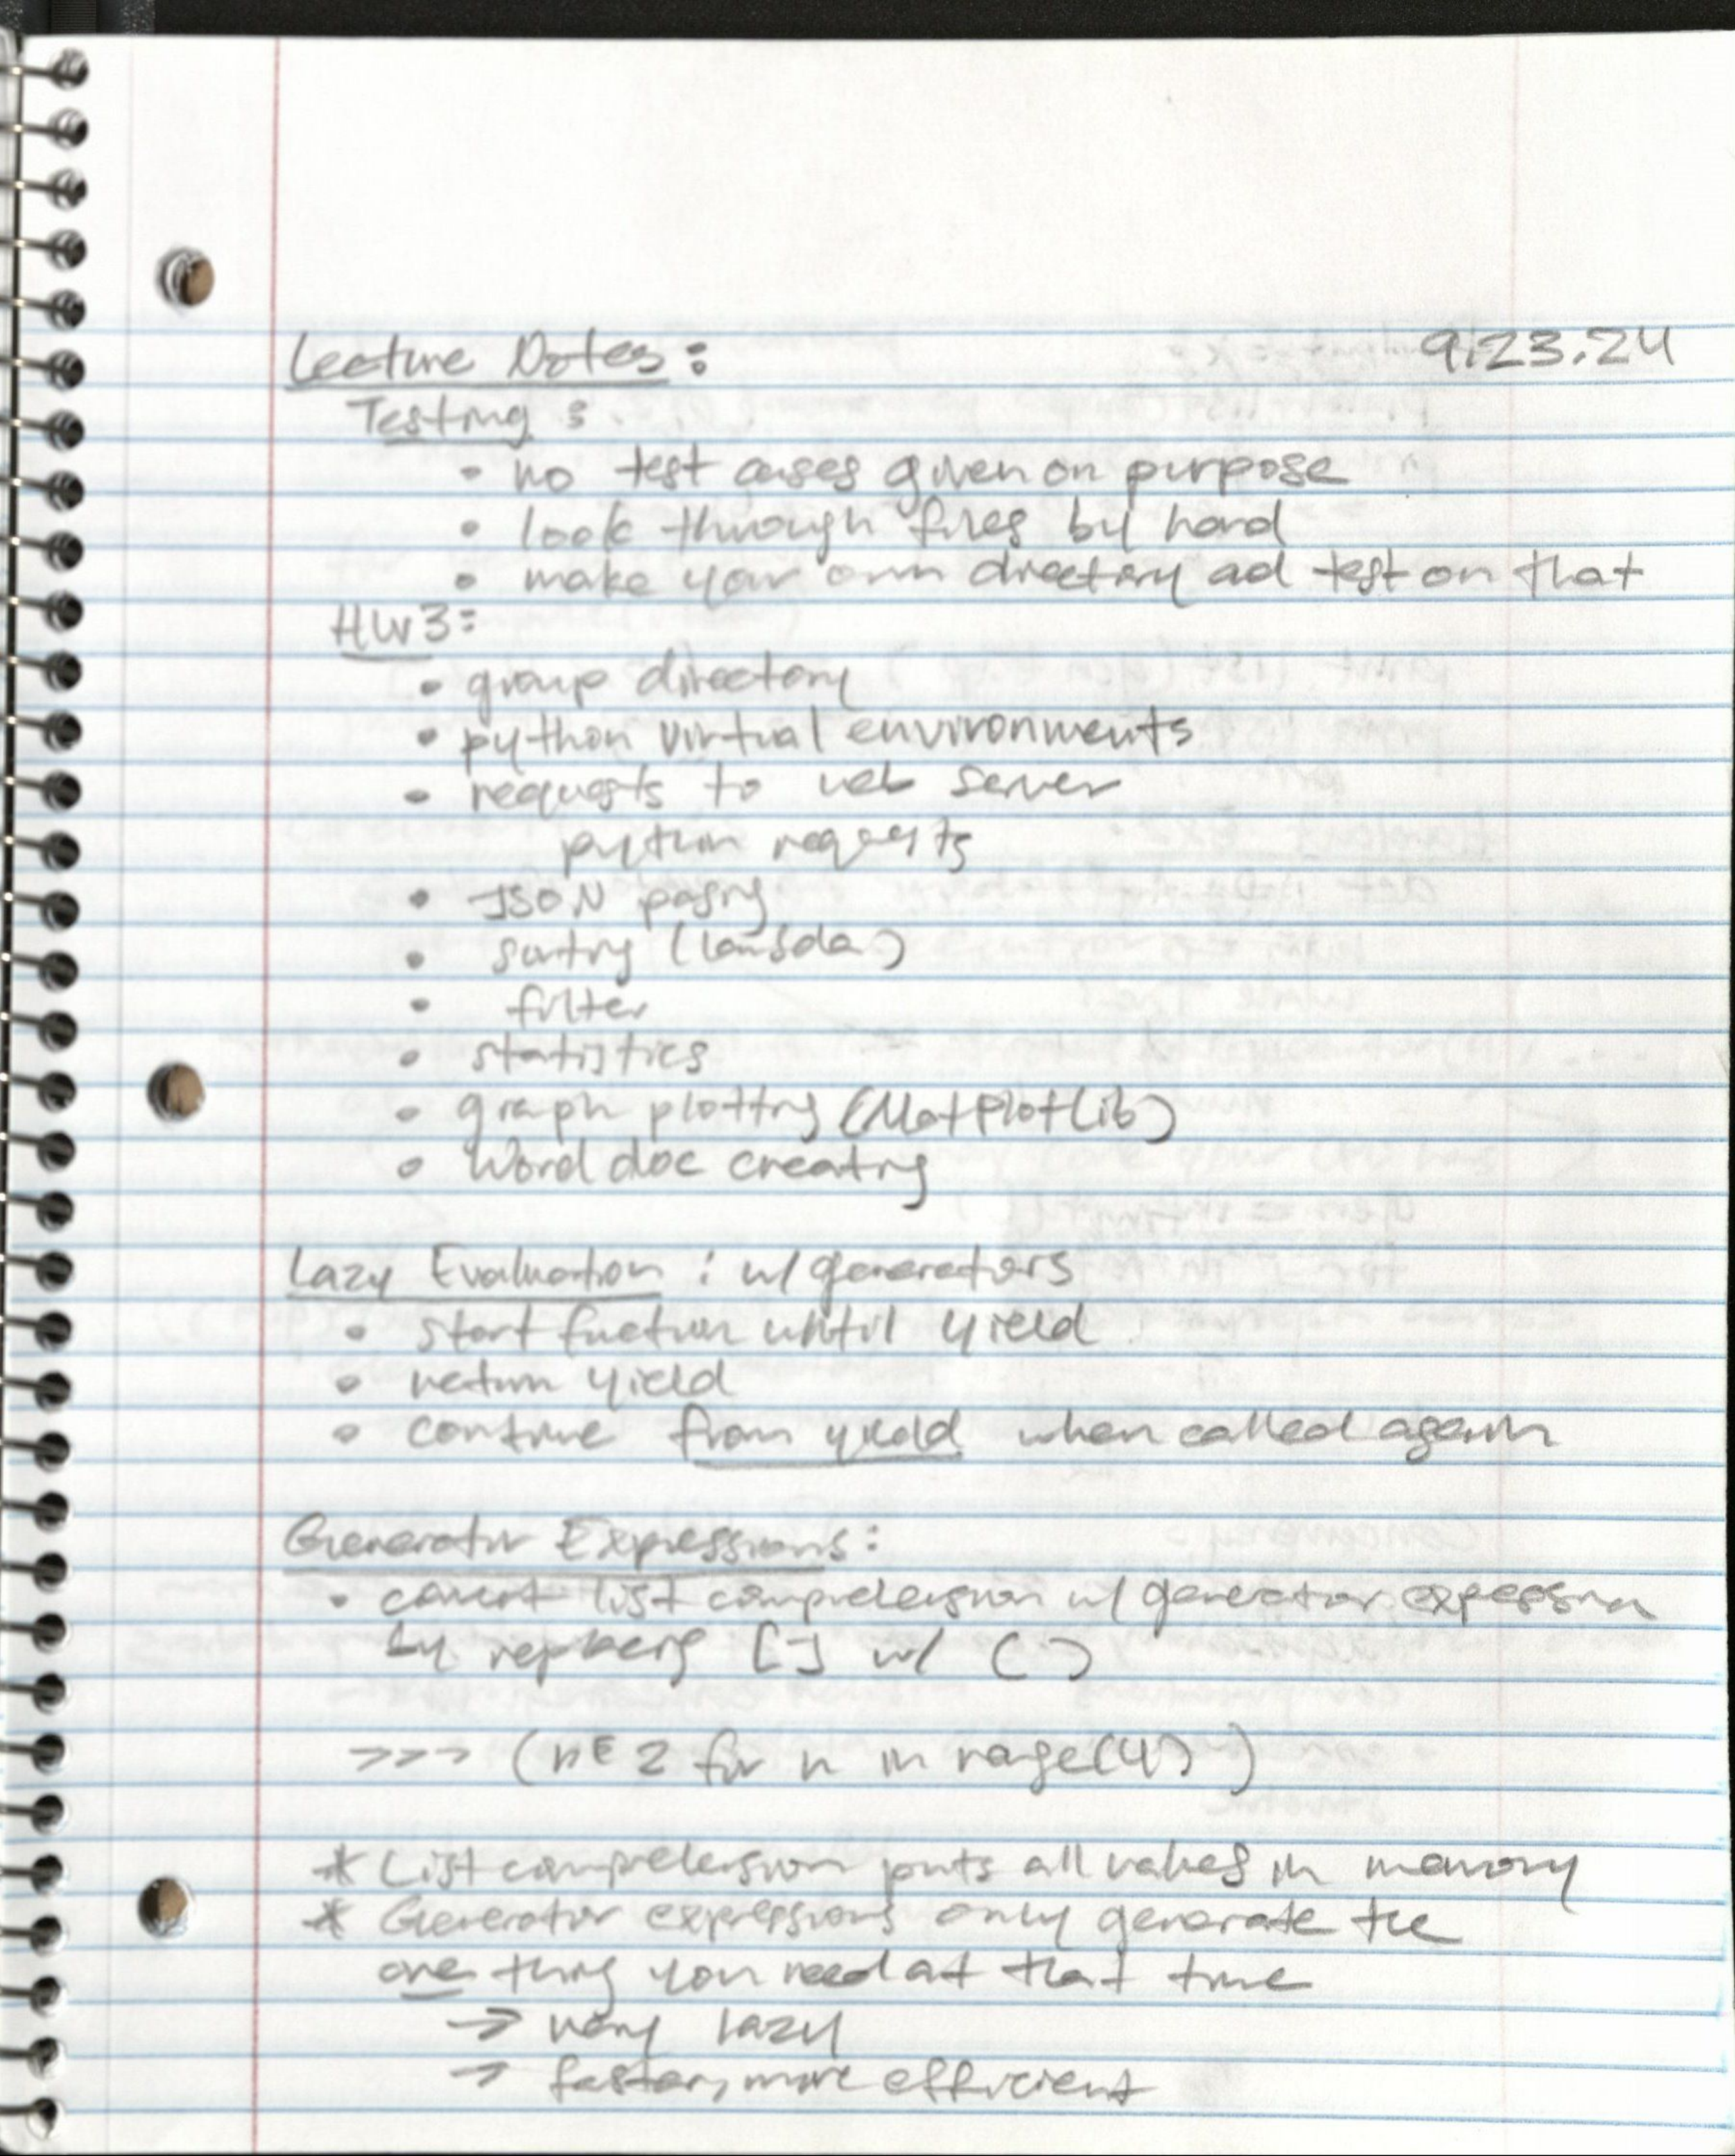 Lecture Notes: 9.23.24
Testing:
• no test cases given on purpose
• look through files by hand
• make your own directory ad test on that
HW3:
• group directory
• python virtual environments
• requests to web server
python requests
• JSON pasing
• sorting (lambda)
• filter
• statistics
• graph plotting (MatPlotLib)
• Word doc creating
Lazy Evaluation: w/ generators
• start function until yield
• return yield
• continue from yield when called again
Generator Expressions:
• convert list comprehension w/ generator expression
by replacing [] w/ ()
>>> (n 2 for n in range(4))
* List comprehension puts all values in memory
* Generator expressions only generate the
one thing you need at that time
→ very lazy
→ faster, more efficient